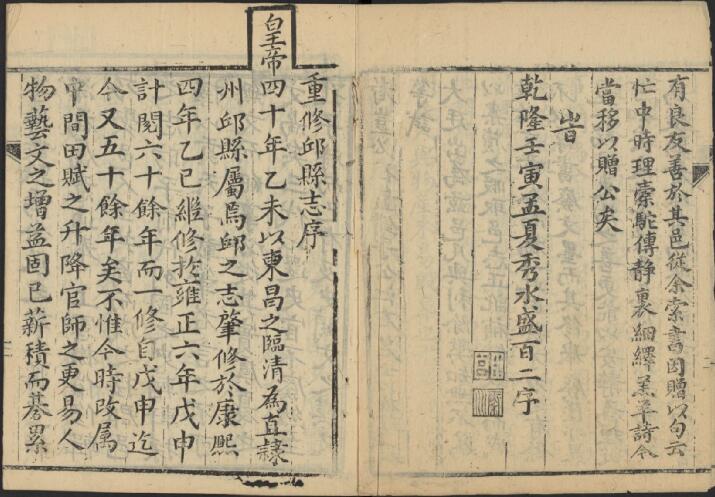 有良友善於其邑從余索書因贈以句云
忙中時理橐駝傳静裏細繹羔羊詩今
當移以贈公矣
旹
乾隆壬寅孟夏秀水盛百二字
重修邱縣志序
皇帝四十年乙未以東昌之臨清為直隸
州邱縣屬焉邱之志肇修於康熙
四年乙巳繼修於雍正六年戊申
計閱六十餘年而一修自戊申迄
今又五十餘年矣不惟今時改属
中間田賦之升降官師之更易人
物藝文之增益固已薪積而綦累